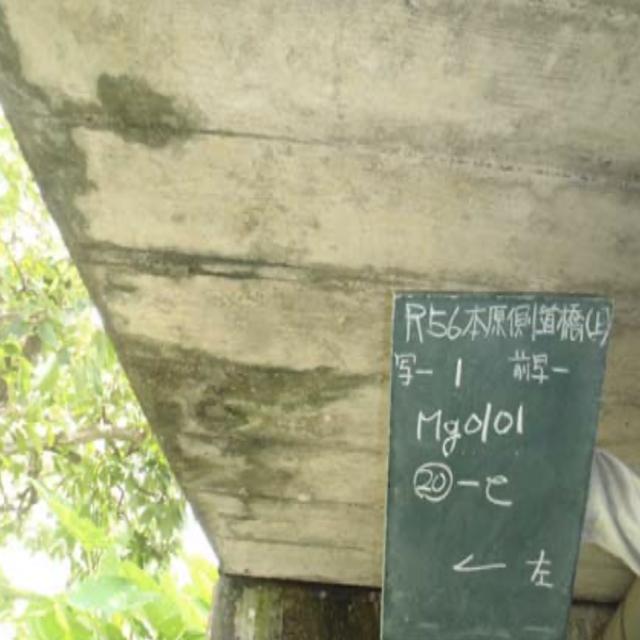 R56本原側道橋(上)
写-1 前写-
Mg0101
⑳-e
← 左